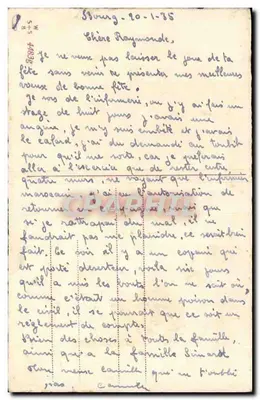 Bourg - 20-1-35
Chère Raymonde,
Je ne veux pas laisser le jour de ta
fête sans venir te présenter mes meilleurs
vœux de bonne fête.
Je sors de l'infirmerie, où j'y ai fait un
stage de huit jours j'avais une
angine, je m'y suis embêté et j'avais
le cafard, j'ai du demandé au toubib
pour qu'il me sorte, car je préférais
aller à l'exercice que de rester entre
quatre murs, ne voyant que l'infirmier
j'ai l'autorisation de
retourner ainsi que
si je rattrapai du mal, il ne
faudrait pas me plaindre, ce serait bien
fait. Ce soir il y a un copain qui
est porté déserteur, voilà six jours
qu'il a mis les bouts l'on ne sait où,
comme c'était un homme dans
le civil il se pourrait que ce soit un
règlement de comptes
Bien des choses à toute la famille,
ainsi qu'à la famille Simard
Ton vieux camille qui ne t'oublie
pas. Camille